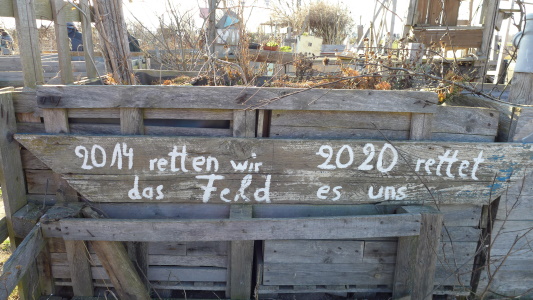 2014 retten wir 2020 rettet
das Feld es uns